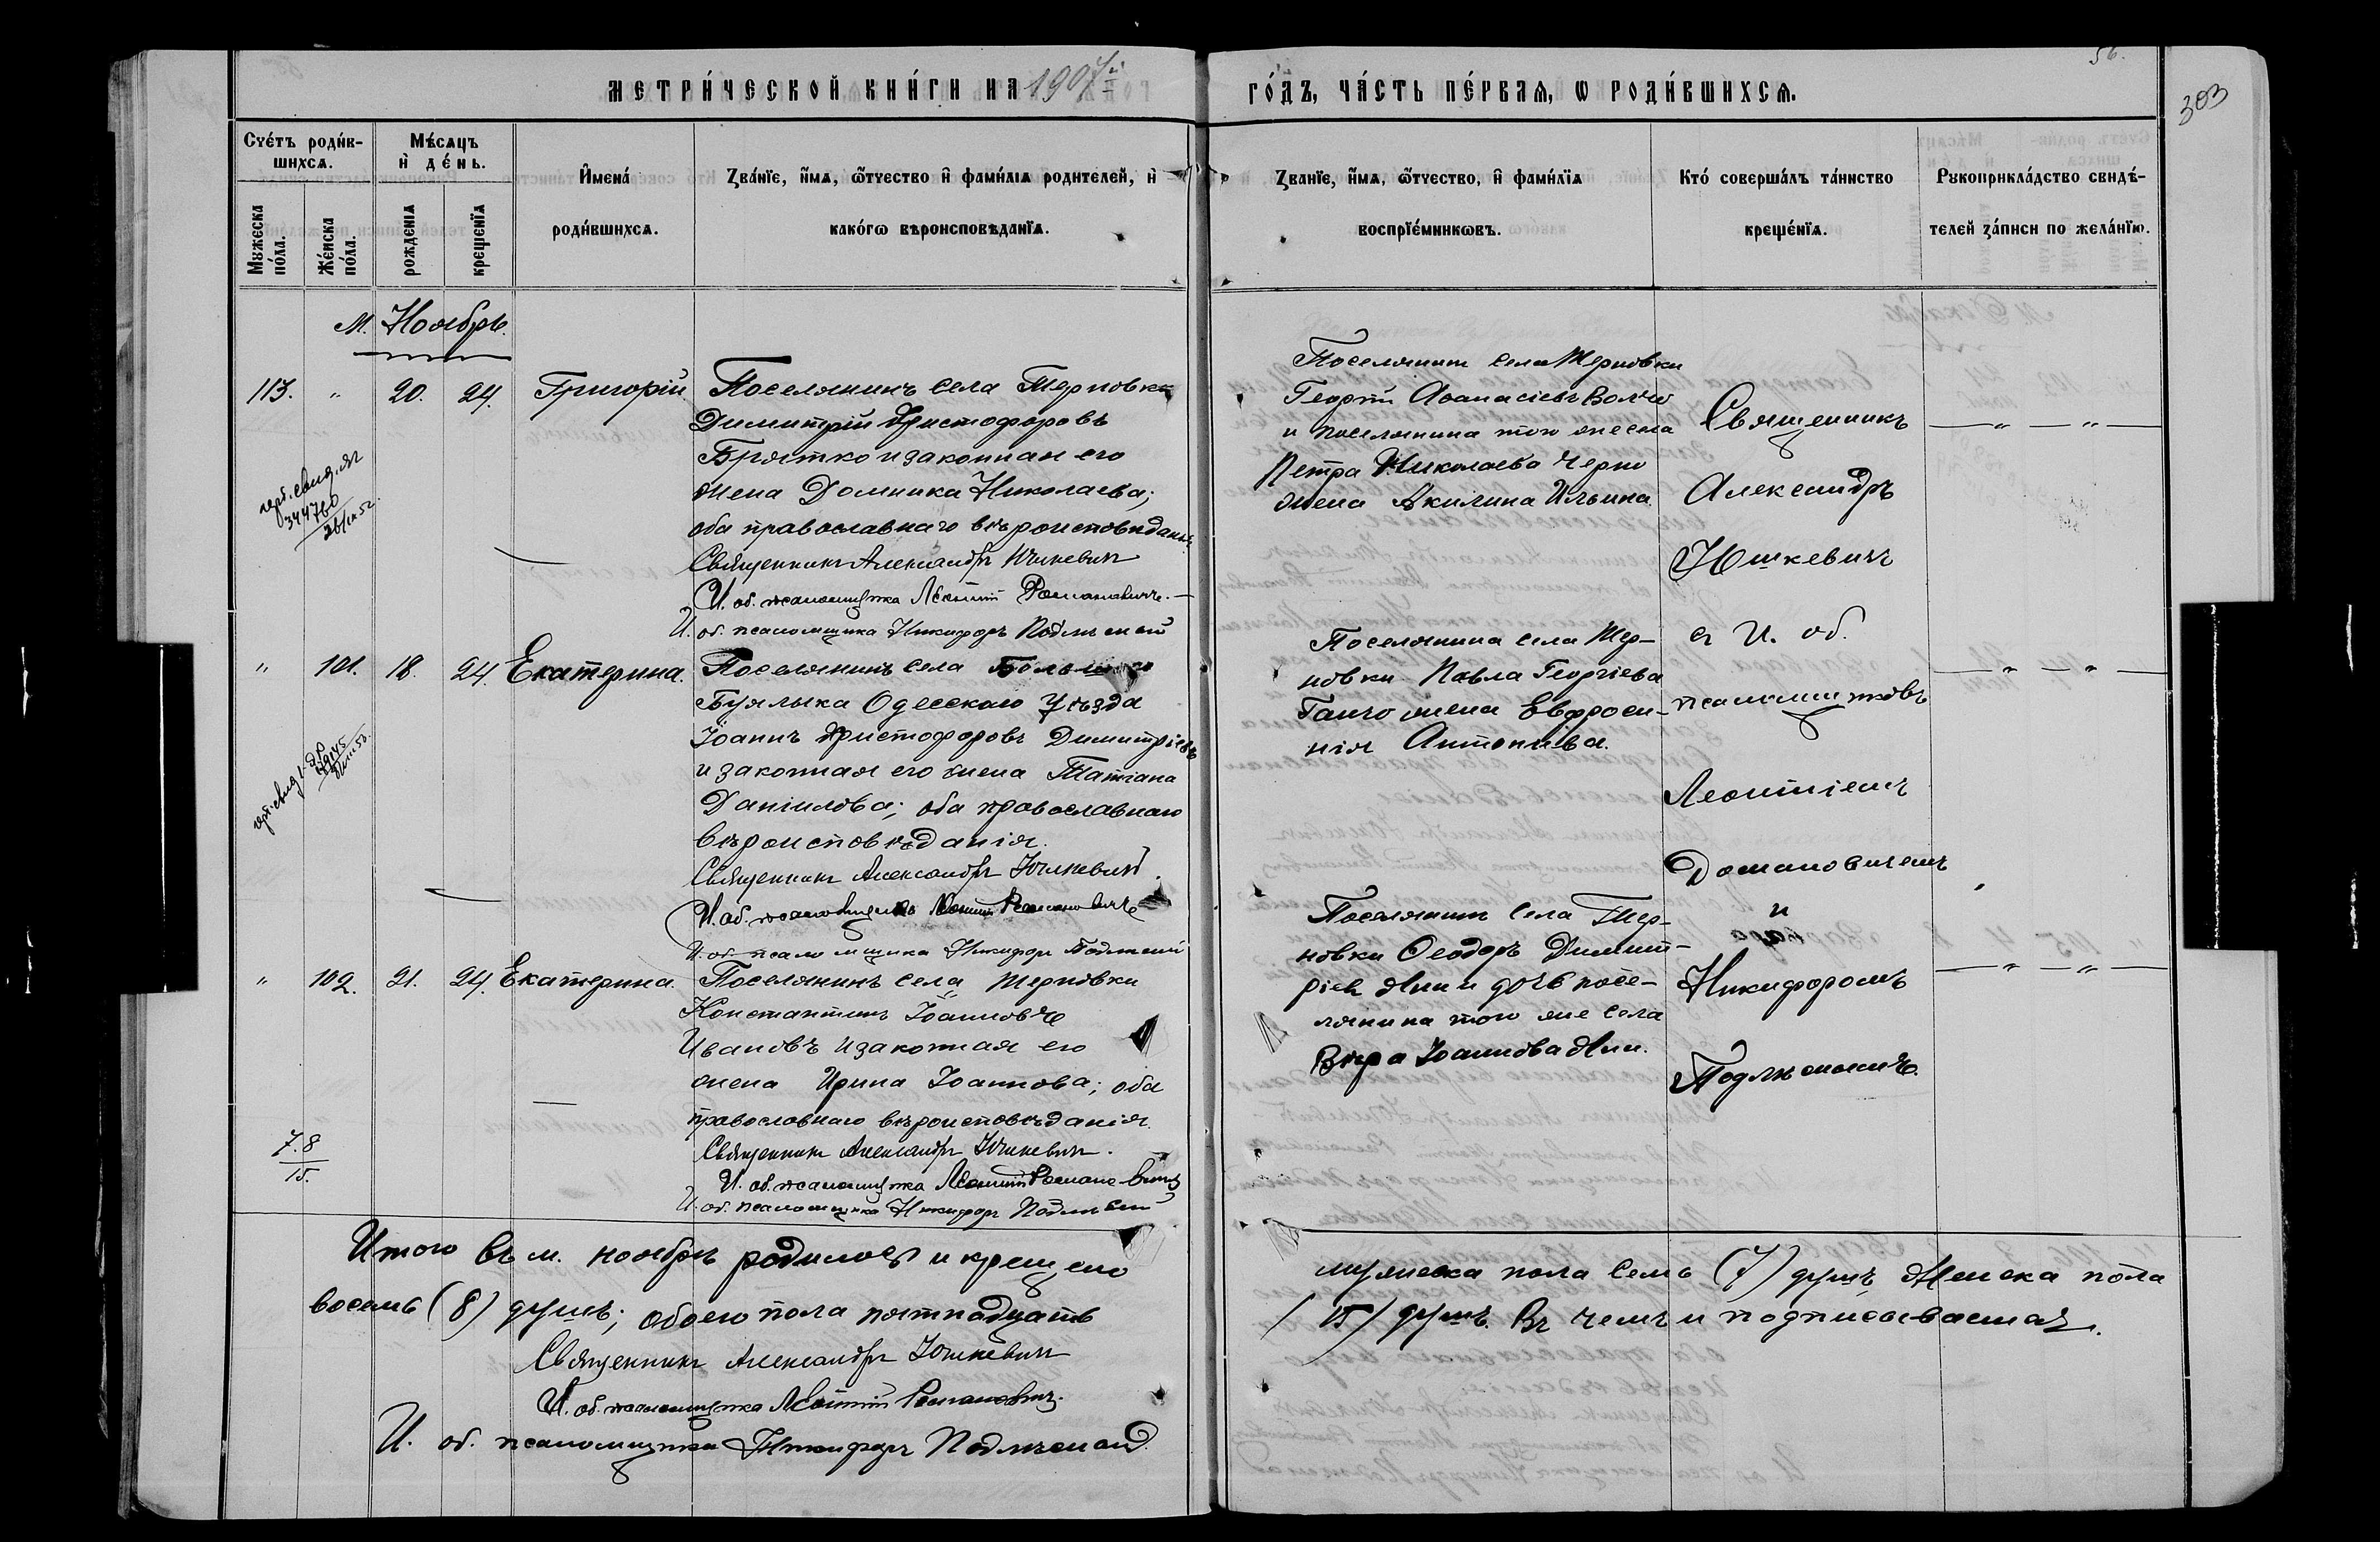 56.
303
МЕТРИ́ЧЕСКОЙ КНИ́ГИ НА 1907й
ГО́ДЪ, ЧА́СТЬ ПЕ́РВАѦ, Ѡ РОДИ́ВШИХСѦ.
Сче́тъ роди́в-
шихсѧ.
Мѣ́сѧцъ
и҆ де́нь.
И҆мена́
роди́вшихсѧ.
Зва́нїе, и҆́мѧ, ѻ҆́тчество и҆ фами́лїѧ родителей, и҆
како́гѡ вѣроисповѣданїѧ.
Званїе, и҆́мѧ, ѻ҆́тчество, и҆ фами́лїѧ
воспрїе́мникѡвъ.
Кто́ соверша́лъ та́инство
креще́нїѧ.
Рукоприкла́дство свидѣ́-
телей за́писи по жела́нїю.
Мужеска
по́ла.
Же́нска
по́ла.
рожденїѧ
крещенїѧ
М. Ноябрь.
113. " 20. 24. Григорій.
Поселянинъ села Терновки
Димитрій Христофоровъ
Брятко и законная его
жена Домника Николаева;
оба православнаго вѣроисповѣданія
Священникъ Александръ Юшкевичъ
И. об. псаломщика Леонтій Романовичъ.
И. об. псаломщика Никифоръ
344760
Поселянинъ села Терновки
Георгій Аѳанасіевъ Волчо
и поселянина того же села
Петра Николаева Черно
жена Акилина Ильина.
Священникъ
Александръ
Юшкевичъ
съ И. об.
псаломщиковъ
Леонтіемъ
Романовичемъ
и
Никифоромъ
— " — " —
" 101. 18. 24. Екатерина.
Поселянинъ села Большого
Буялыка Одесскаго уѣзда
Іоаннъ Христофоровъ Димитріевъ
и законная его жена Татіана
Даніилова; оба православнаго
вѣроисповѣданія.
Священникъ Александръ Юшкевичъ.
И. об. псаломщика Леонтій Романовичъ
И. об. псаломщика Никифоръ
Поселянина села Тер-
новки Павла Георгіева
Ганчо жена Евфроси-
нія Антоніева.
— " — " —
" 102. 21. 24. Екатерина.
Поселянинъ села Терновки
Константинъ Іоанновъ
Ивановъ и законная его
жена Ирина Іоаннова; оба
православнаго вѣроисповѣданія.
Священникъ Александръ Юшкевичъ.
И. об. псаломщика Леонтій Романовичъ
И. об. псаломщика Никифоръ
Поселянинъ села Тер-
новки Ѳеодоръ Димит-
ріевъ и дочь посе-
лянина того же села
Вѣра Іоаннова
— " — " —
7. 8
15.
Итого въ м. ноябрѣ родилось и крещено
мужеска пола семь (7) душъ, женска пола
восемь (8) душъ; обоего пола пятнадцать
(15) душъ. Въ чемъ и подписываемся.
Священникъ Александръ Юшкевичъ
И. об. псаломщика Леонтій Романовичъ.
И. об. псаломщика Никифоръ